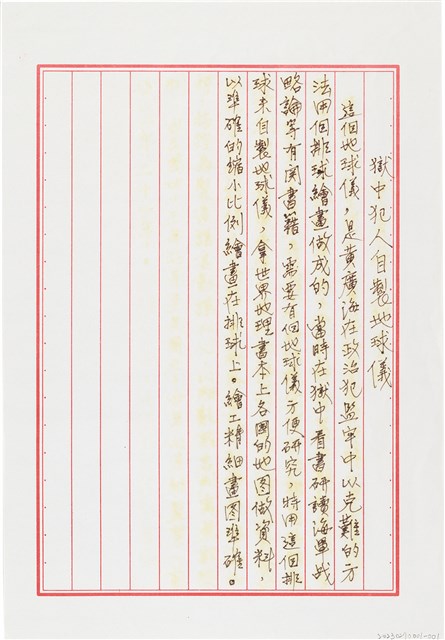 獄中犯人自製地球儀
這個地球儀，是黃廣海在政治犯監牢中以克難的方
法用個排球繪畫做成的，當時在獄中看書研讀海軍战
略論等有関書籍，需要有個地球儀方便研究，特用這個排
球来自製地球儀，拿世界地理書本上各國的地图做資料，
以準確的縮小比例繪畫在排球上。繪工精細畫图準確。